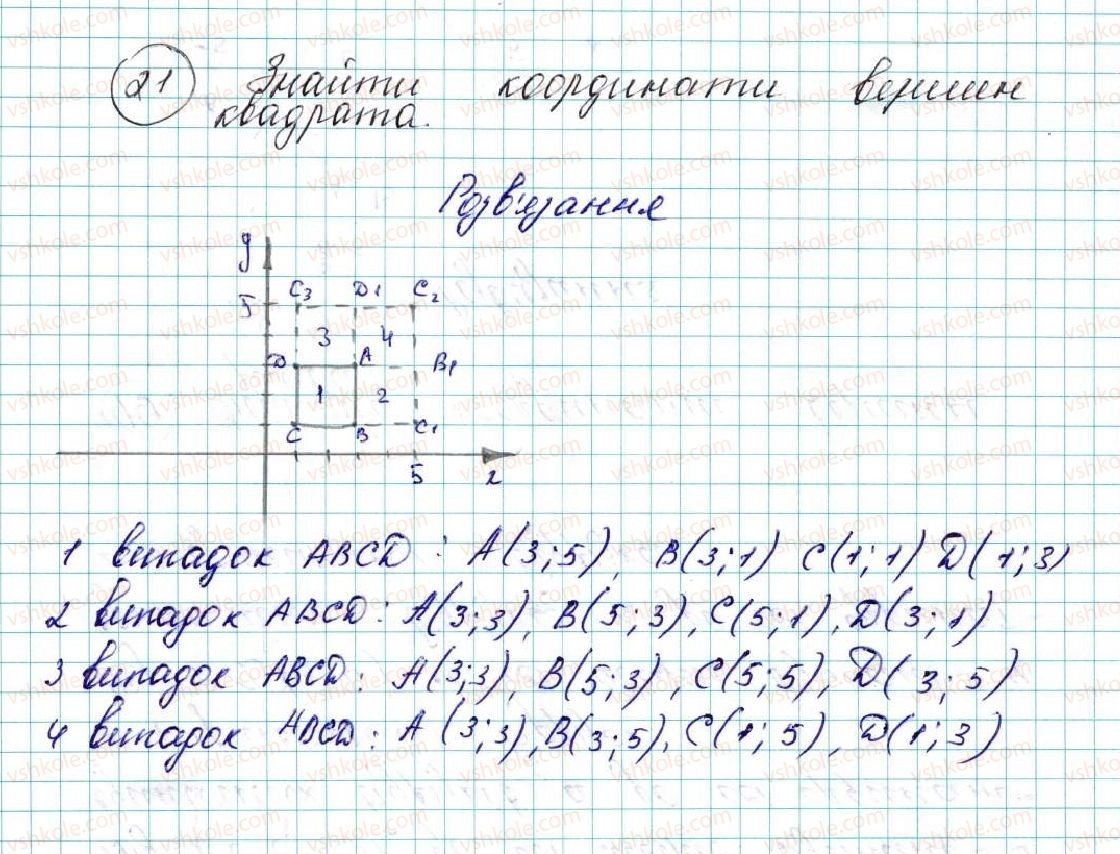 21 Знайти координати вершин
квадрата.
Розв'язання
y
5 C3 D1 C2
3 4
D A B1
1 2
C B C1
5 x
1 випадок ABCD: A(3;5), B(3;1) C(1;1) D(1;3)
2 випадок ABCD: A(3;3), B(5;3), C(5;1), D(3;1)
3 випадок ABCD: A(3;3), B(5;3), C(5;5), D(3;5)
4 випадок ABCD: A(3;3), B(3;5), C(1;5), D(1;3)
vshkole.com